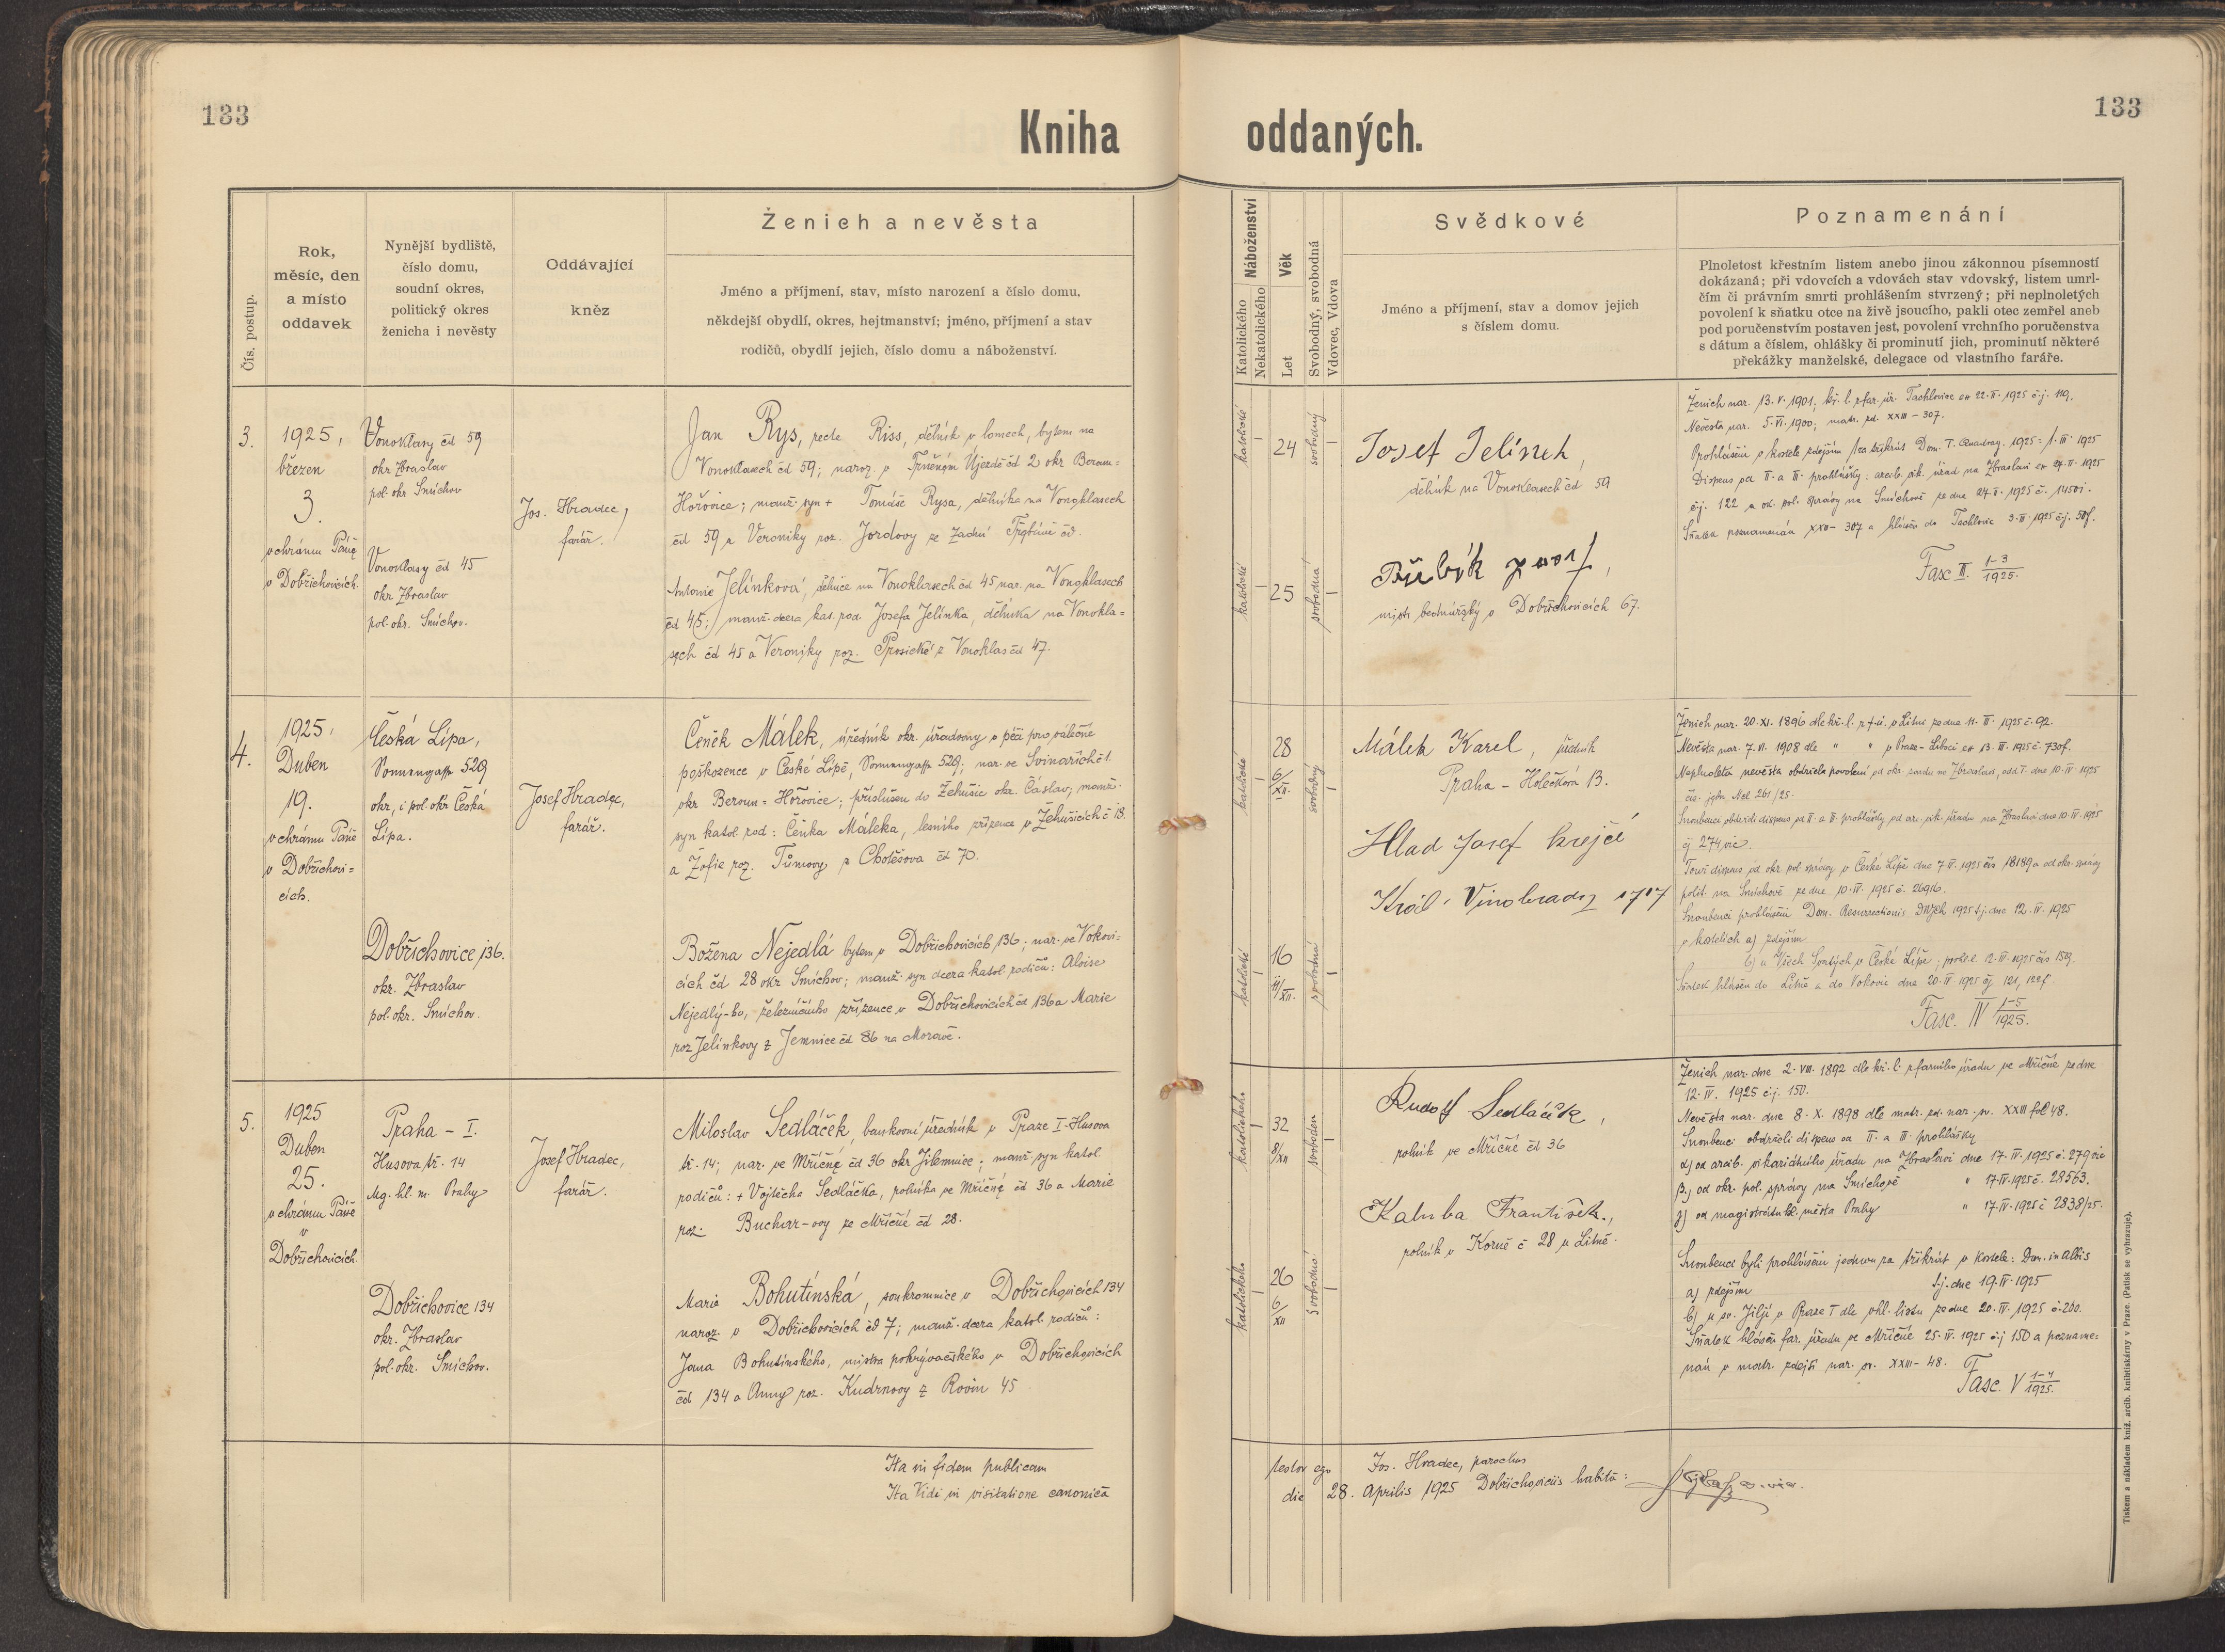 133
Kniha
oddaných.
133
Čís. postup.
Rok,
měsíc, den
a místo
oddavek
Nynější bydliště,
číslo domu,
soudní okres,
politický okres
ženicha i nevěsty
Oddávající
kněz
Ženich a nevěsta
Jméno a příjmení, stav, místo narození a číslo domu,
někdejší obydlí, okres, hejtmanství; jméno, příjmení a stav
rodičů, obydlí jejich, číslo domu a náboženství.
Náboženství
Katolického
Nekatolického
Věk
Let
Svobodný, svobodná
Vdovec, Vdova
Svědkové
Jméno a příjmení, stav a domov jejich
s číslem domu.
Poznamenání
Plnoletost křestním listem anebo jinou zákonnou písemností
dokázaná; při vdovcích a vdovách stav vdovský, listem umrl-
čím či právním smrti prohlášením stvrzený; při neplnoletých
povolení k sňatku otce na živě jsoucího, pakli otec zemřel aneb
pod poručenstvím postaven jest, povolení vrchního poručenstva
s dátum a číslem, ohlášky či prominutí jich, prominutí některé
překážky manželské, delegace od vlastního faráře.
3.
1925,
březen
3.
v chrámu Páně
v Dobřichovicích.
Vonoklasy čd 59
okr Zbraslav
pol. okr Smíchov
Vonoklasy čd 45
okr Zbraslav
pol. okr. Smíchov.
Jos. Hradec,
farář.
Jan Rys, recte Riss, dělník v lomech, bytem na
Vonoklasech čd 59; naroz. v Trněném Újezdě čd 2 okr Beroun=
Hořovice; manž. syn + Tomáše Rysa, dělníka na Vonoklasech
čd 59 a Veroniky roz. Jordovy ze Zadní Třebáně čd.
Antonie Jelínková, dělnice na Vonoklasech čd 45 nar. na Vonoklasech
čd 45; manž. dcera kat. rod. Josefa Jelínka, dělníka na Vonokla=
sech čd 45 a Veroniky roz. Prosické z Vonoklas čd 47.
katolické
24
svobodný
katolické
25
svobodná
Josef Jelínek,
dělník na Vonoklasech čd 59
mistr bednářský v Dobřichovicích 67.
Ženich nar. 13. V. 1901; kř. l. z far. úř. Tachlovice ex 22. II. 1925 č.j. 119.
Nevěsta nar. 5. VI. 1900; matr. zd. XXIII – 307.
Prohlášeni v kostele zdejším 1 za třikrát Dom. I. Quadrag. 1925 = 1. III. 1925
Dispens od II. a III. prohlášky: arcib. vik. úřad na Zbraslavi ex 27. II. 1925
č.j. 122 a od. pol. správy na Smíchově ze dne 24. II. 1925 č. 14501.
Fasc III. 1-3/1925.
4.
1925.
Duben
19.
v chrámu Páně
v Dobřichovi=
cích.
Česká Lípa,
Sonnengasse 529
okr, i pol okr Česká
Lípa.
Dobřichovice 136.
okr. Zbraslav
pol. okr. Smíchov.
Josef Hradec,
farář.
Čeněk Málek, úředník okr. úřadovny o péči pro válečné
poškozence v České Lípě, Sonnengasse 529; nar. ve Svinařích č 1.
okr Beroun = Hořovice; příslušen do Žehušic okr. Čáslav; manž.
syn katol. rod: Čeňka Máleka, lesního zřízence v Žehušicích č 18.
a Žofie roz. Tůmovy z Chotěšova čd 70.
Božena Nejedlá bytem v Dobřichovicích 136; nar. ve Vokovi=
cích čd 28 okr. Smíchov; manž. syn dcera katol. rodičů: Aloise
Nejedlý-ho, železničního zřízence v Dobřichovicích čd 136 a Marie
roz Jelínkovy z Jemnice čd 86 na Moravě.
katolické
28
6/XII.
svobodný
katolické
16
11/XII.
svobodná
Málek Karel, úředník
Praha – Holečkova 13.
Hlad Josef krejčí
Král. Vinohrady 1717
Ženich nar. 20. XI. 1896 dle kř. l. z f. ú. v Litni ze dne 11. III. 1925 č. 92.
Nevěsta nar. 7. VI. 1908 dle " " v Praze – Liboci ex 13. III. 1925 č. 730f.
Neplnoletá nevěsta obdržela povolení od okr. soudu na Zbraslavi, odd I. dne 10. IV. 1925
čís. jedn. Nel 261/25.
Snoubenci obdrželi dispens od II. a III. prohlášky od arc. vik. úřadu na Zbraslavi dne 10. IV. 1925
čj 274 vic.
Touž dispens od okr. pol. správy v České Lípě dne 7. IV. 1925 čís 18189 a od okr. správy
polit. na Smíchově ze dne 10. IV. 1925 č. 26916.
Snoubenci prohlášeni Dom. Resurrectionis DNJCh 1925 t.j. dne 12. IV. 1925
v kostelích a) zdejším
b) u Všech Svatých v České Lípě; prohl. l. 12. IV. 1925 čís 159.
Sňatek hlášen do Litně a do Vokovic dne 20. IV 1925 čj 121, 122f.
Fasc. IV 1-5/1925.
5.
1925
Duben
25.
v chrámu Páně
v
Dobřichovicích.
Praha – I.
Husova tř. 14
Mg. hl. m. Prahy
Dobřichovice 134
okr. Zbraslav
pol. okr. Smíchov.
Josef Hradec,
farář.
Miloslav Sedláček, bankovní úředník v Praze I – Husova
tř. 14; nar. ve Mříčné čd 36 okr Jilemnice; manž. syn katol.
rodičů: + Vojtěcha Sedláčka, rolníka ve Mříčné čd 36 a Marie
roz. Buchar-ovy ze Mříčné čd 28.
Marie Bohutínská, soukromnice v Dobřichovicích 134
naroz. v Dobřichovicích čd 7; manž. dcera katol. rodičů:
Jana Bohutínského, mistra pokrývačského v Dobřichovicích
čd 134 a Anny roz. Kudrnovy z Rovin 45
katolického
32
8/XII
svoboden
katolického
26
6/XII
svobodná
Rudolf Sedláček,
rolník ve Mříčné čd 36
Kaluba František.,
rolník v Korně č 28 u Litně.
Ženich nar. dne 2. VIII. 1892 dle kř. l. z farního úřadu ve Mříčné ze dne
12. IV. 1925 č.j. 150.
Nevěsta nar. dne 8. X. 1898 dle matr. zd. nar. sv. XXIII fol 48.
Snoubenci obdrželi dispens od II. a III. prohlášky
α) od arcib. vikariátního úřadu na Zbraslavi dne 17. IV. 1925 č. 279 vic
β) od okr. pol. správy na Smíchově " 17. IV. 1925 č. 28563.
γ) od magistrátu hl. města Prahy " 17. IV. 1925 č 2838/25.
Snoubenci byli prohlášeni jednou za třikrát v kostele: Dom. in Albis
t.j. dne 19. IV. 1925
a) zdejším
b) u sv. Jiljí v Praze I dle ohl. listu ze dne 20. IV. 1925 č. 260.
Sňatek hlášen far. úřadu ve Mříčné 25. IV. 1925 čj 150 a pozname=
nán v matr. zdejší nar. sv. XXIII – 48.
Fasc. V 1-4/1925.
Ita in fidem publicam testor ego Jos. Hradec, parochus
Ita Vidi in visitatione canonica die 28. Aprilis 1925 Dobřichoviciis habita:
Tiskem a nákladem kníž. arcib. knihtiskárny v Praze. (Patisk se vyhrazuje).